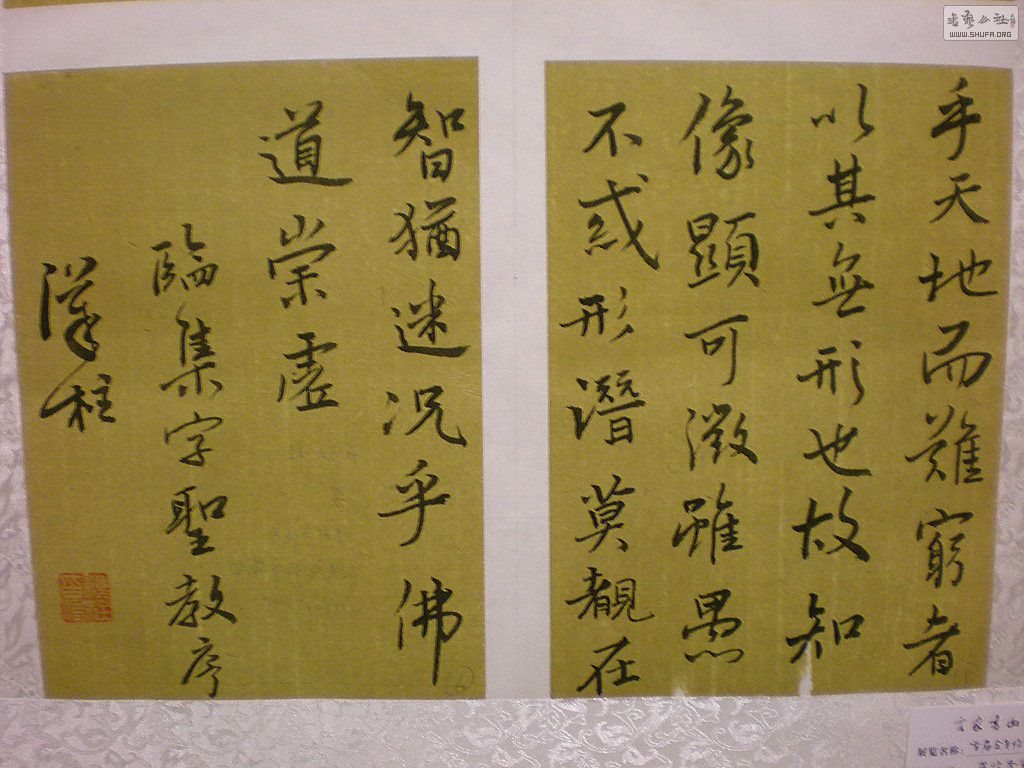 乎天地而難窮者
以其無形也故知
像顯可徵雖愚
不惑形潛莫覩在
智猶迷況乎佛
道崇虛
臨集字聖教序
漢柱
書藝公社
WWW.SHUFA.ORG
展览名称: